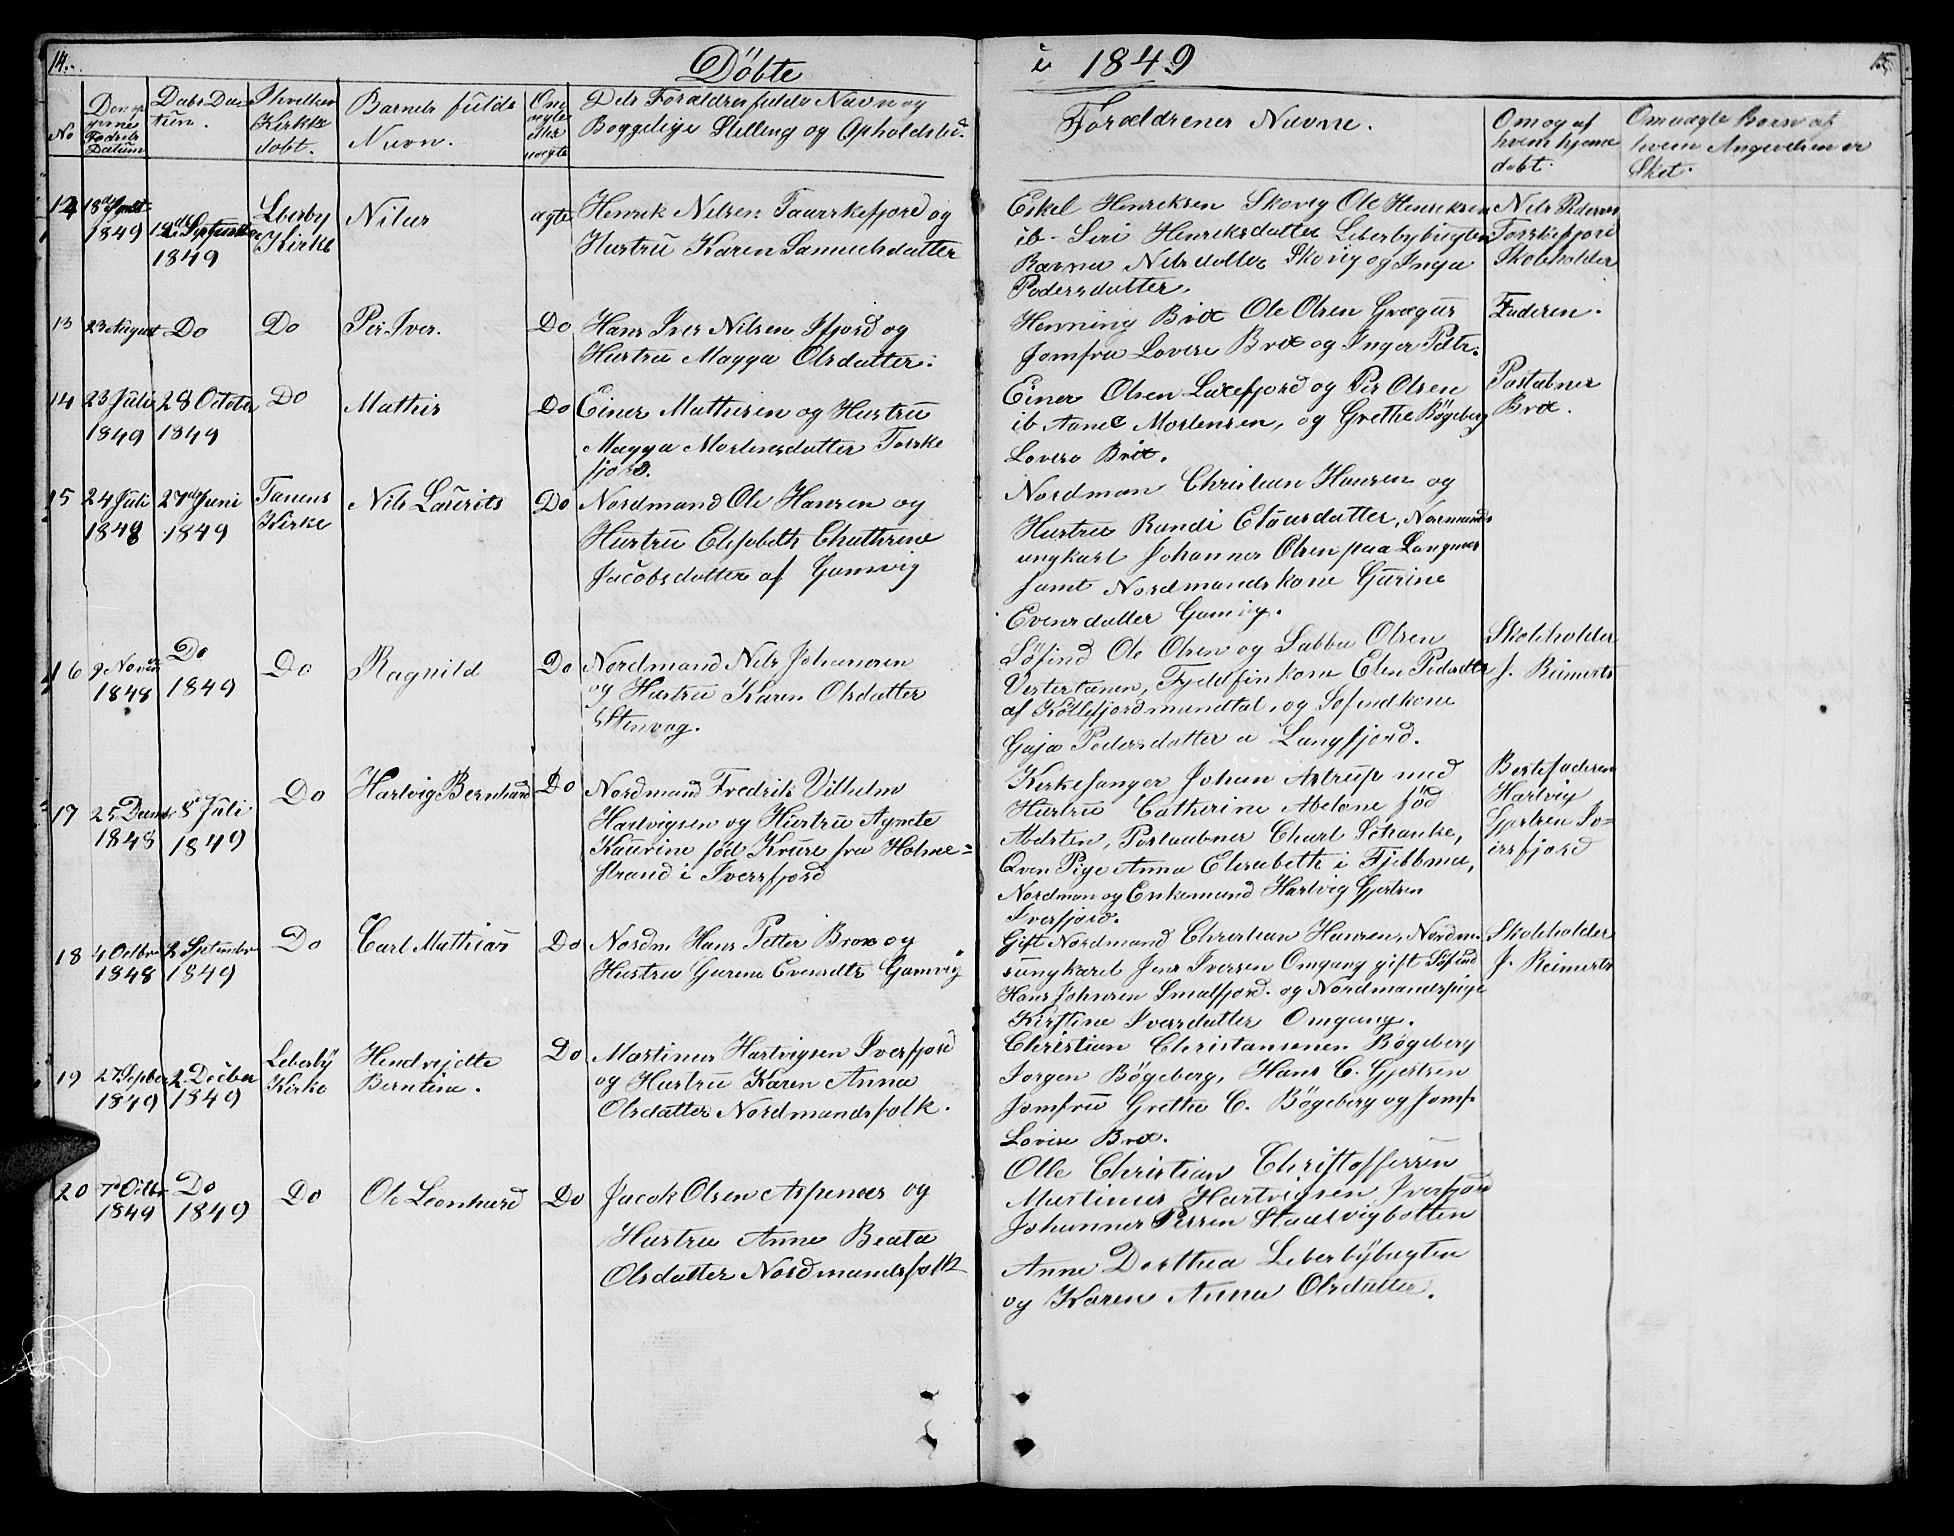 14.
Döbte
i 1849
15
No
Fødsels
Datum
Dabs Da-
tum.
I hvilken
Kirkke
döbt.
Barnets fulde
Navn.
Om
ægte
eller
uægte
Dets Foraldres fulde Navn og
Boggelige Stilling og Opholdsted
Foraldrenes Navne.
Om og af
hvem hjemme
dabt.
Om uægte Børn af
hvem Angivelsen er
Sket.
12
1849
1849
Leberby
Kirke
Nilus
ægte
Henrik Nilsen Taarskefjord og
Hustrü Karen Samuelsdatter
Eskel Henriksen Skovig Ole Henriksen
ib. Siri Henriksdatter Leberbybugten
Nilsdatter Skovig og Inga
Pedersdatter.
Nils Pedersen
Torskefjord
Skoleholder
13
23 August
Do
Do
Per Iver.
Do
Hans Iver Nilsen Ifjord og
Hustru Magga Olsdatter.
Henning Brox Ole Olsen
Jomfru Lovise Brox og Inger Petr.
Faderen.
14
23 Juli
1849
28 Octobr
1849
Do
Mathis
Do
Einer Mathisen og Hustrü
Magga Mortensdatter Torske
fjord.
Einer Olsen Laxefjord og Per Olsen
ib Aane Mortensen, og Grethe Bögeberg
Lovise Brox.
Postabner
Brox.
15
24 Juli
1848
27de Juni
1849
Tanens
Kirke
Nils Laürits
Do
Nordmand Ole Hansen og
Hustrü Elisabeth Chathrine
Jacobsdatter af Gamvig
Nordman Christian Hansen og
Hustrue Randi Clausdatter, Normands
ungkarl Johannes Olsen paa Langnes
samt Nordmandskone Gürine
Evensdatter Gamvig.
16
9 Novbr
1848
Do
1849
Do
Ragnild
Do
Nordmand Nils Johansen
og Hustrü Karen Olsdatter
Stenvog.
Söfind Ole Olsen og Sabba Olsen
Vestertanen, Fjeldfinkone Elen Pedersdtr
af Kollefjordmundtal, og Sofindkone
Gaja Pedersdatter a Langfjord.
Skoleholder
J. Reimerts
17
25 Decmbr
1848
8 Juli
1849
Do
Hartvig Bernhard
Do
Nordmand Fredrik Vilhelm
Hartvigsen og Hustrü Agnete
Kaurine fød Kruse fra Holme=
strand i Iversfjord
Kirkesanger Johan Astrup med
Hustrü Catherine Abelone fød
Abelsten, Postaabner Charl Schanke,
Qven Pige Anna Elisabeth i Fjebbma,
Nordman og Enkemand Hartvig Gjertsen
Iverfjord.
Bestefaderen
Hartvig
Gjertsen Iv=
ersfjord
18
4 Octbr
1848
2 September
1849
Do
Carl Mathias
Do
Nordm. Hans Petter Brox og
Hustru Gurine Evensdtr Gamvig
Gift Nordmand Christian Hansen, Nordm.
sungkarel Jens Iversen Omgang gift Söfind
Hans Johnsen Smalfjord. og Nordmandspige
Kirstine Iversdatter Omgang.
Skoleholder
J. Reimerts
19
27 Septbr
1849
2. Decbr
1849
Leberby
Kirke
Hendrijette
Berntine.
Do
Martinus Hartvigsen Iverfjord
og Hustrü Karen Anna
Olsdatter Nordmandsfolk.
Christian Christansenen Bögeberg
Jorgen Bögeberg, Hans C. Gjertsen
Jomfrü Grethe C. Bögeberg og Jomf.
Lovise Brox.
20
7de Octbr
1849
Do
1849
Do
Ole Leonhard
Do
Jacok Olsen Aspenæs og
Hustru Anne Beata
Olsdatter Nordmandsfolk
Olle Christian Christoffersen
Martinus Hartvigsen Iverfjord
Johannes Persen Staalvigbotten
Anne Dorthea Leberbybugten
og Karen Anna Olsdatter.